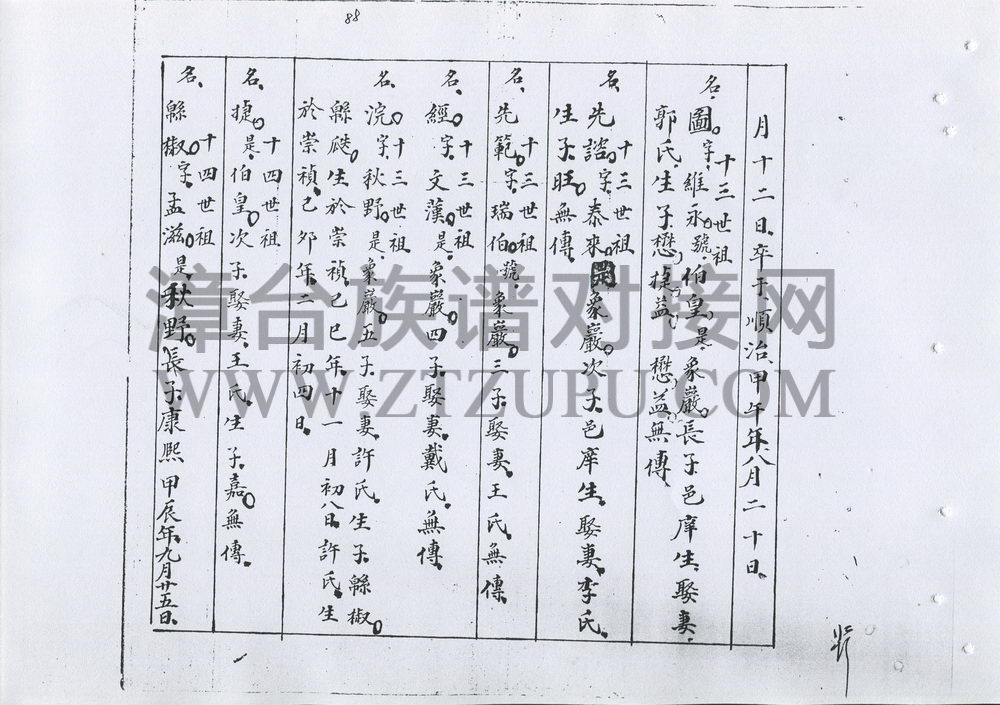 88
月十二日卒于順治甲午年八月二十日
十三世祖
名圖字維永號伯皇是象巖長子邑庠生娶妻
郭氏生子懋捷益懋益無傳
十三世祖
名先諮字泰來 象巖次子邑庠生娶妻李氏
生子旺無傳
十三世祖
名先範字瑞伯號象巖三子娶妻王氏無傳
十三世祖
名經字文漢是象巖四子娶妻戴氏無傳
十三世祖
名浣字秋野是象巖五子娶妻許氏生子緜椒
緜瓞生於崇禎己巳年十一月初八日許氏生
於崇禎己夘年二月初四日
十四世祖
名捷是伯皇次子娶妻王氏生子嘉無傳
十四世祖
名緜椒字孟滋是秋野長子康熙甲辰年九月廿五日
漳台族谱对接网
WWW.ZTZUPU.COM